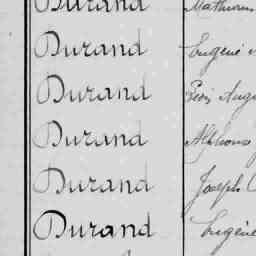 Durand Mathieu
Durand Eugène
Durand Léon Aug
Durand Alphons
Durand Joseph
Durand Eugène